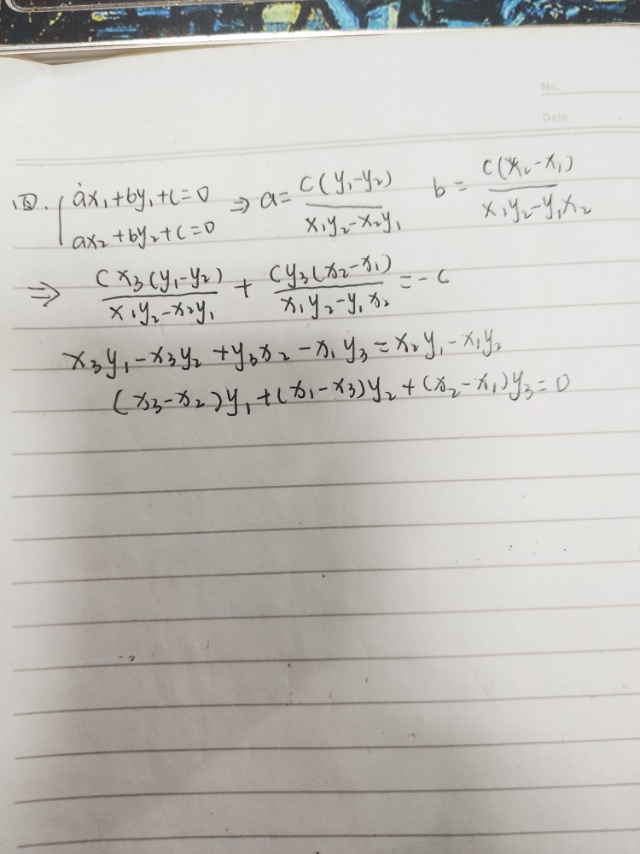 No.
Date
ax₁+by₁+c=0 ⇒ a= c(y₁-y₂)/(x₁y₂-x₂y₁) b= c(x₂-x₁)/(x₁y₂-y₁x₂)
ax₂+by₂+c=0
⇒ cx₃(y₁-y₂)/(x₁y₂-x₂y₁) + cy₃(x₂-x₁)/(x₁y₂-y₁x₂) =-c
x₃y₁-x₃y₂+y₃x₂-x₁y₃=x₂y₁-x₁y₂
(x₃-x₂)y₁+(x₁-x₃)y₂+(x₂-x₁)y₃=0